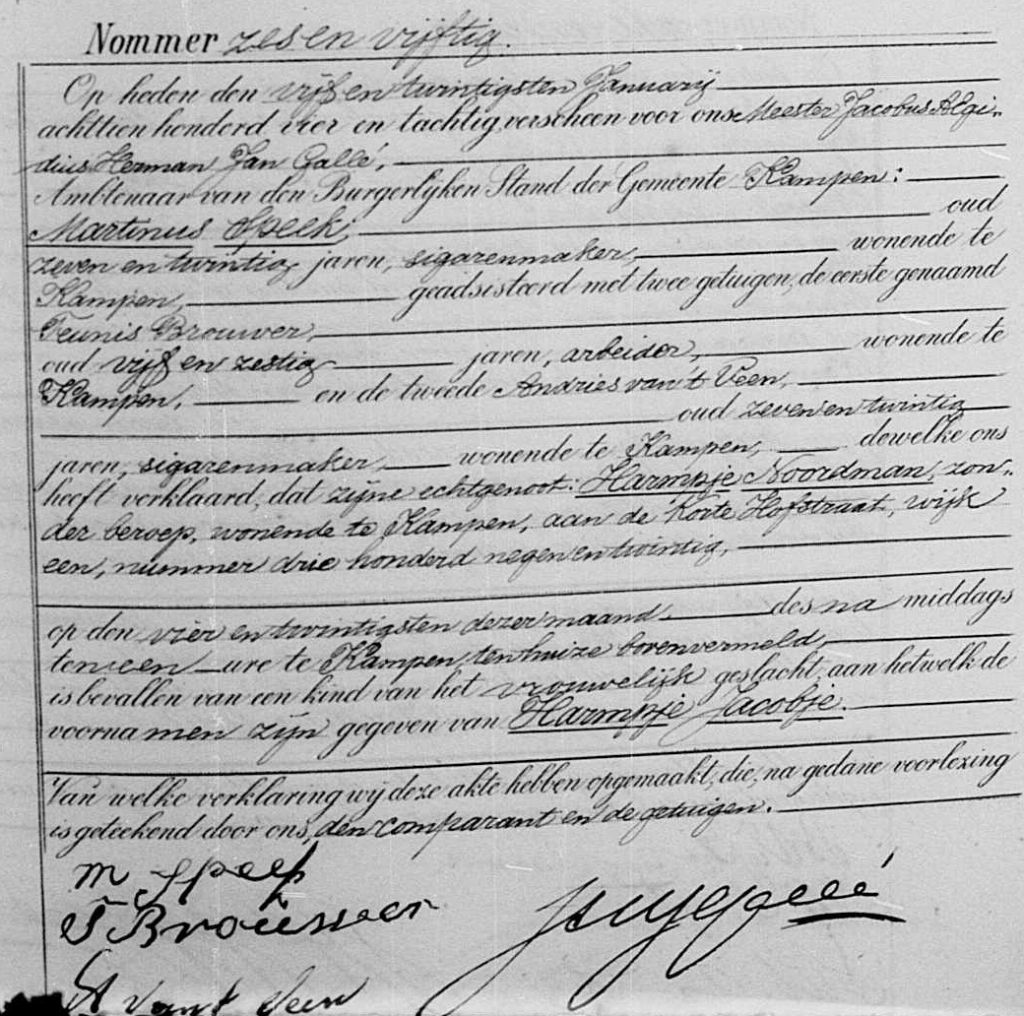 Nommer zes en vijftig.
Op heden den vijf en twintigsten Januarij
achttien honderd vier en tachtig, verscheen voor ons Meester Jacobus Aegi„
dius Herman Jan Gallé,
Ambtenaar van den Burgerlijken Stand der Gemeente Kampen:
Martinus Speek, oud
zeven en twintig jaren, sigarenmaker, wonende te
Kampen, geadsisteerd met twee getuigen, de eerste genaamd
Teunis Brouwer,
oud vijf en zestig jaren, arbeider, wonende te
Kampen, en de tweede Andries van 't Veen,
oud zeven en twintig
jaren, sigarenmaker, wonende te Kampen, dewelke ons
heeft verklaard, dat zijne echtgenoot: Harmpje Noordman, zon„
der beroep, wonende te Kampen, aan de Korte Hofstraat, wijk
een, nummer drie honderd negen en twintig,
op den vier en twintigsten dezer maand, des na middags
ten een ure te Kampen, ten huize bovenvermeld
is bevallen van een kind van het vrouwelijk geslacht, aan hetwelk de
voornamen zijn gegeven van Harmpje Jacobje.
Van welke verklaring wij deze akte hebben opgemaakt, die, na gedane voorlezing
is geteekend door ons, den comparant en de getuigen.
M Speek
T Brouwer
A van t Veen